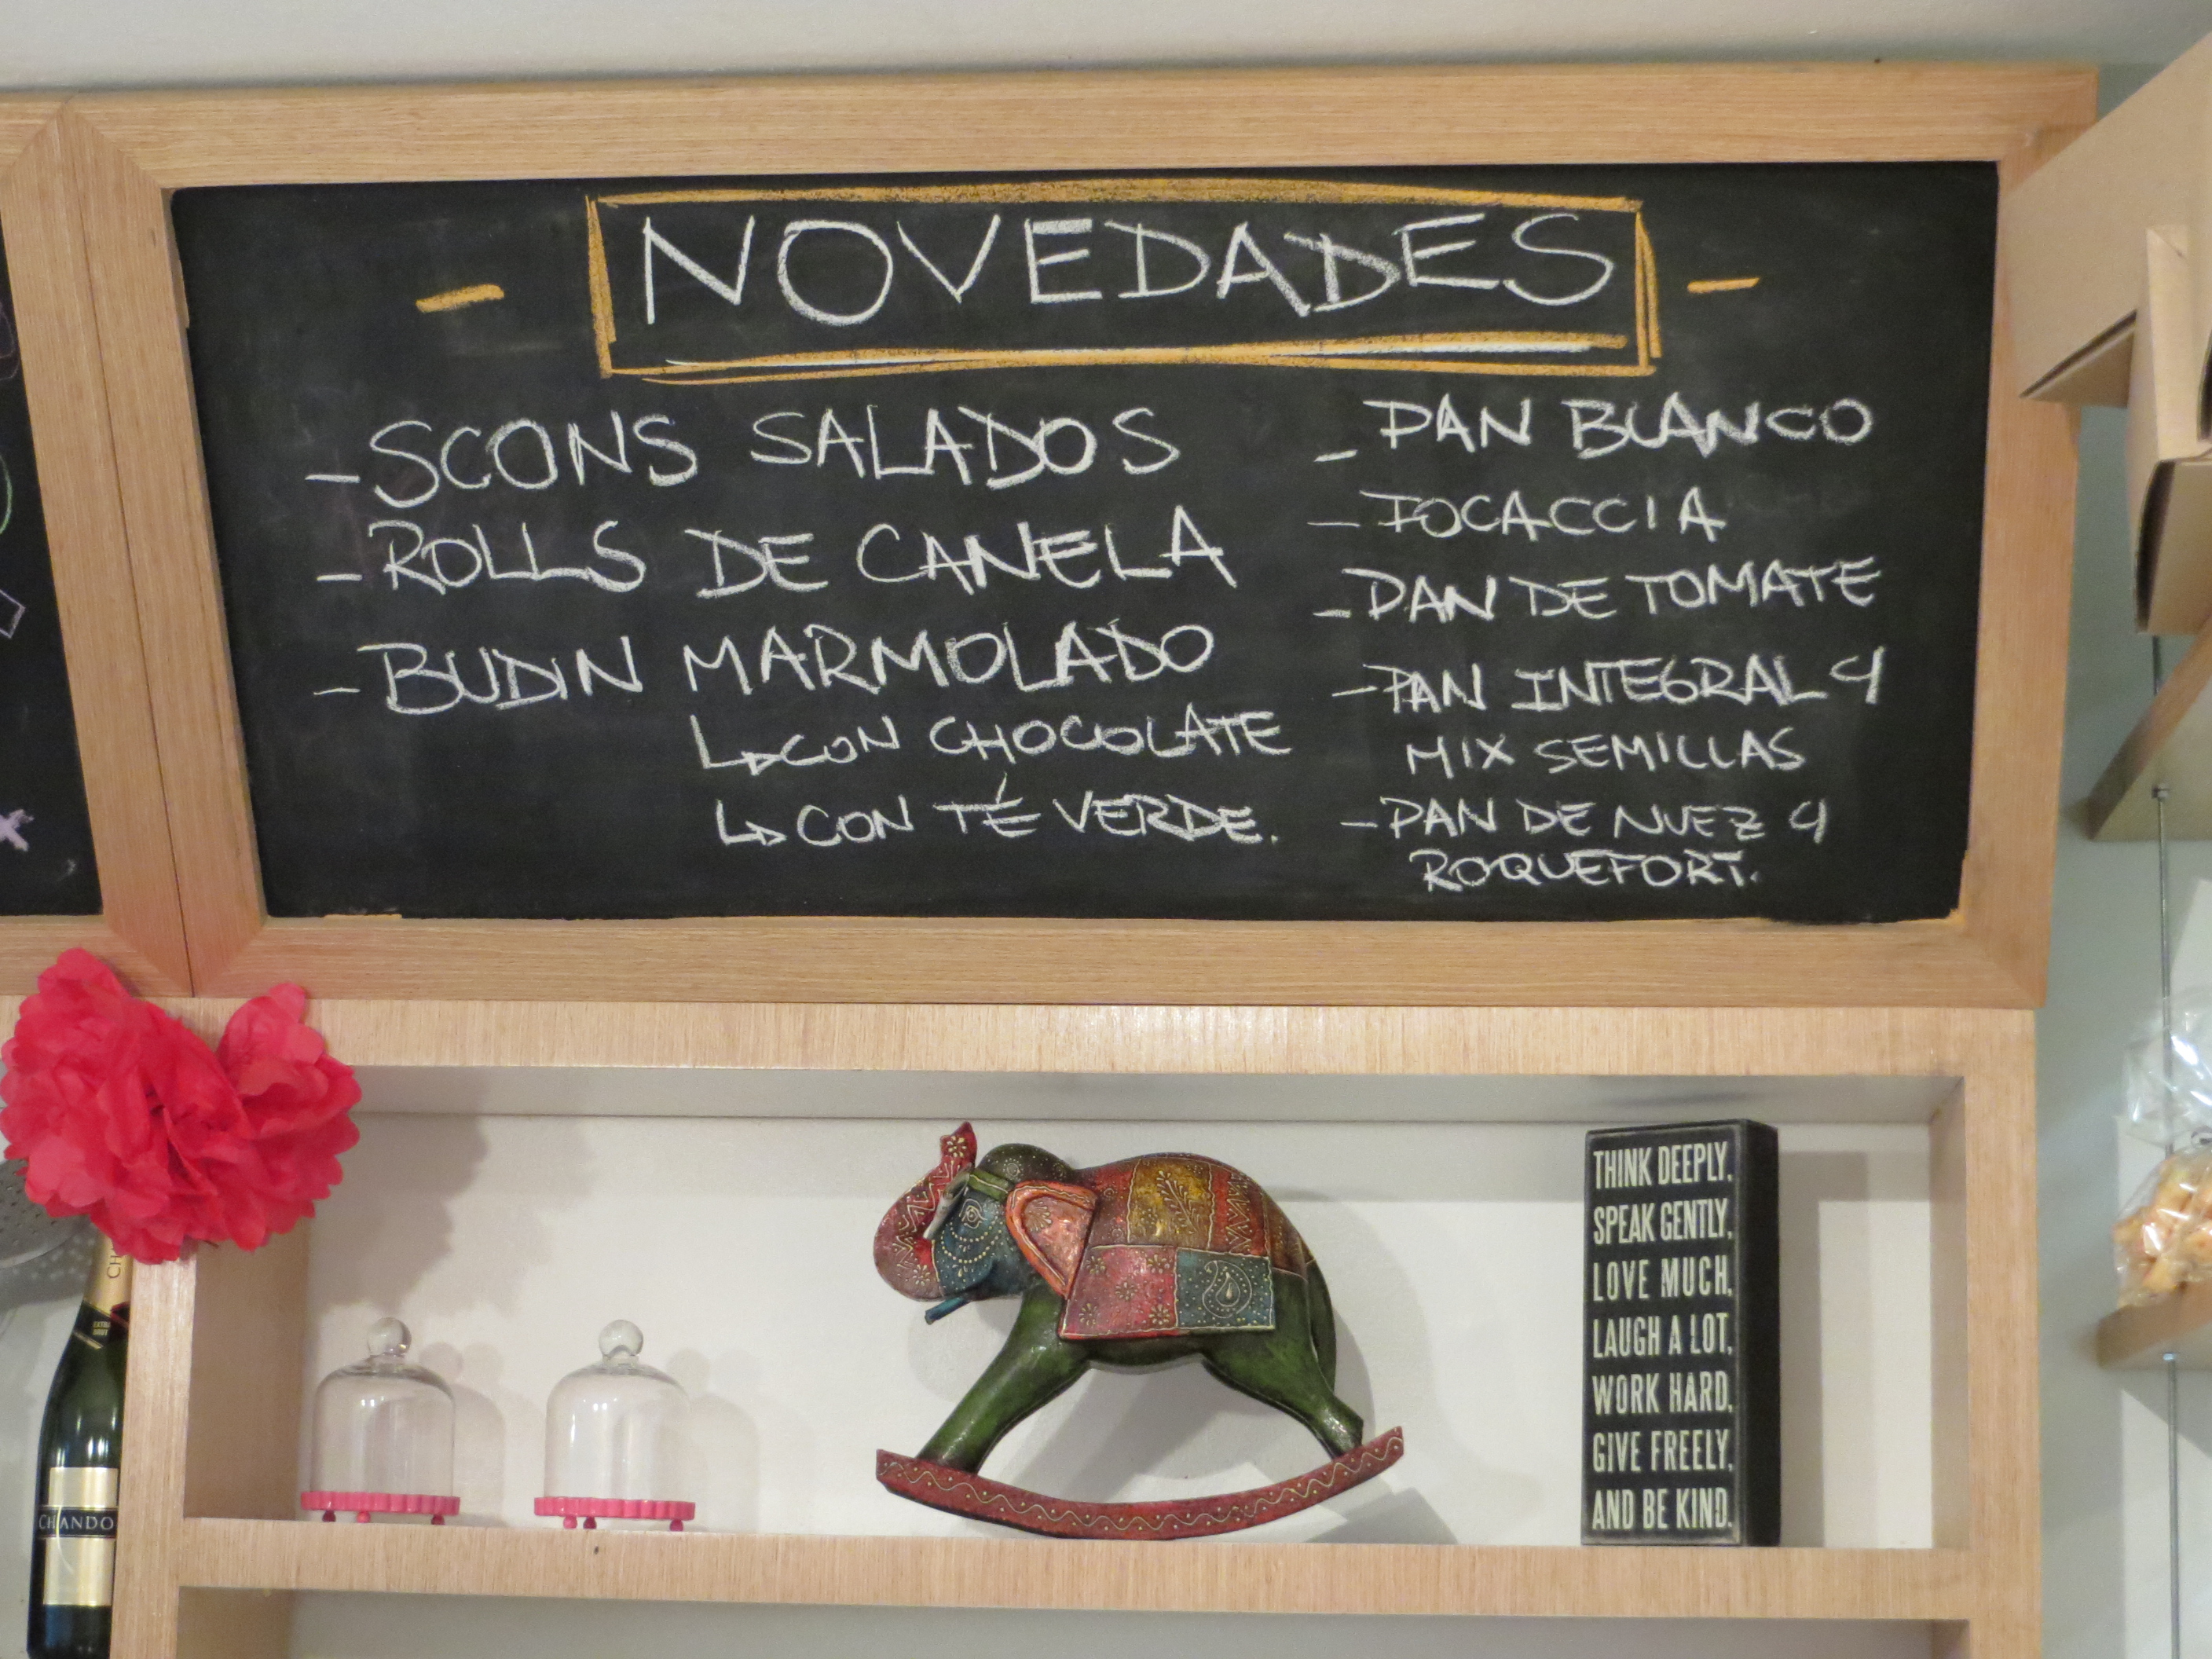 - NOVEDADES -
- SCONS SALADOS
- ROLLS DE CANELA
- BUDIN MARMOLADO
↳ CON CHOCOLATE
↳ CON TÉ VERDE.
- PAN BLANCO
- FOCACCIA
- PAN DE TOMATE
- PAN INTEGRAL Y
MIX SEMILLAS
- PAN DE NUEZ Y
ROQUEFORT.
THINK DEEPLY,
SPEAK GENTLY,
LOVE MUCH,
LAUGH A LOT,
WORK HARD,
GIVE FREELY,
AND BE KIND.
EXTRA
BRUT
CHANDO